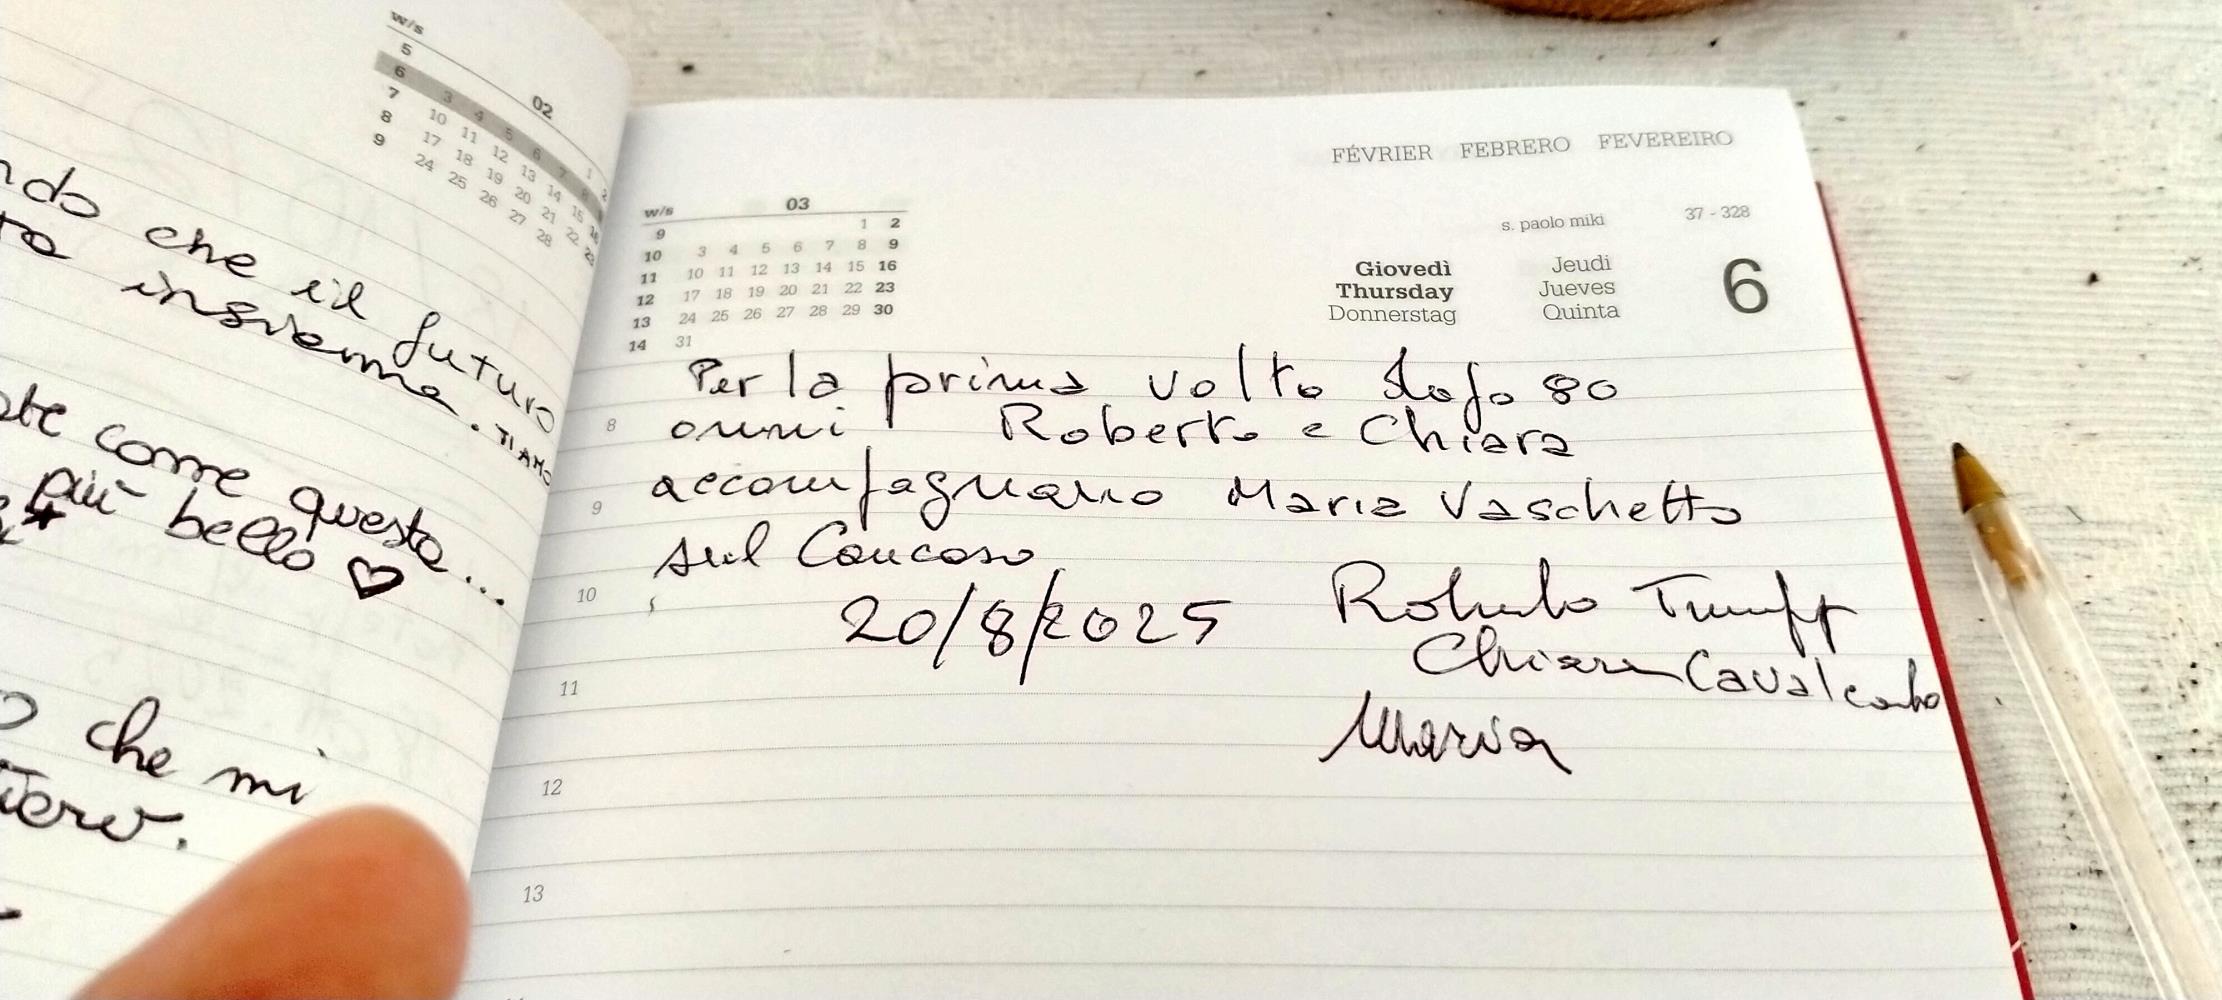 w/s 02
5 1 2
6 3 4 5 6 7 8
7 10 11 12 13 14 15 16
8 17 18 19 20 21 22 23
9 24 25 26 27 28
ndo che il futuro
insieme. TI AMO
come questo...
più bello ♡
che mi
FÉVRIER FEBRERO FEVEREIRO
w/s 03
9 1 2
10 3 4 5 6 7 8 9
11 10 11 12 13 14 15 16
12 17 18 19 20 21 22 23
13 24 25 26 27 28 29 30
14 31
s. paolo miki 37 - 328
Giovedì Jeudi
Thursday Jueves 6
Donnerstag Quinta
Per la prima volta dopo 80
8 anni Roberto e Chiara
9 accompagnano Maria Vaschetto
sul Caucaso
10 20/8/2025 Roberto
Chiara
11 Maria
12
13